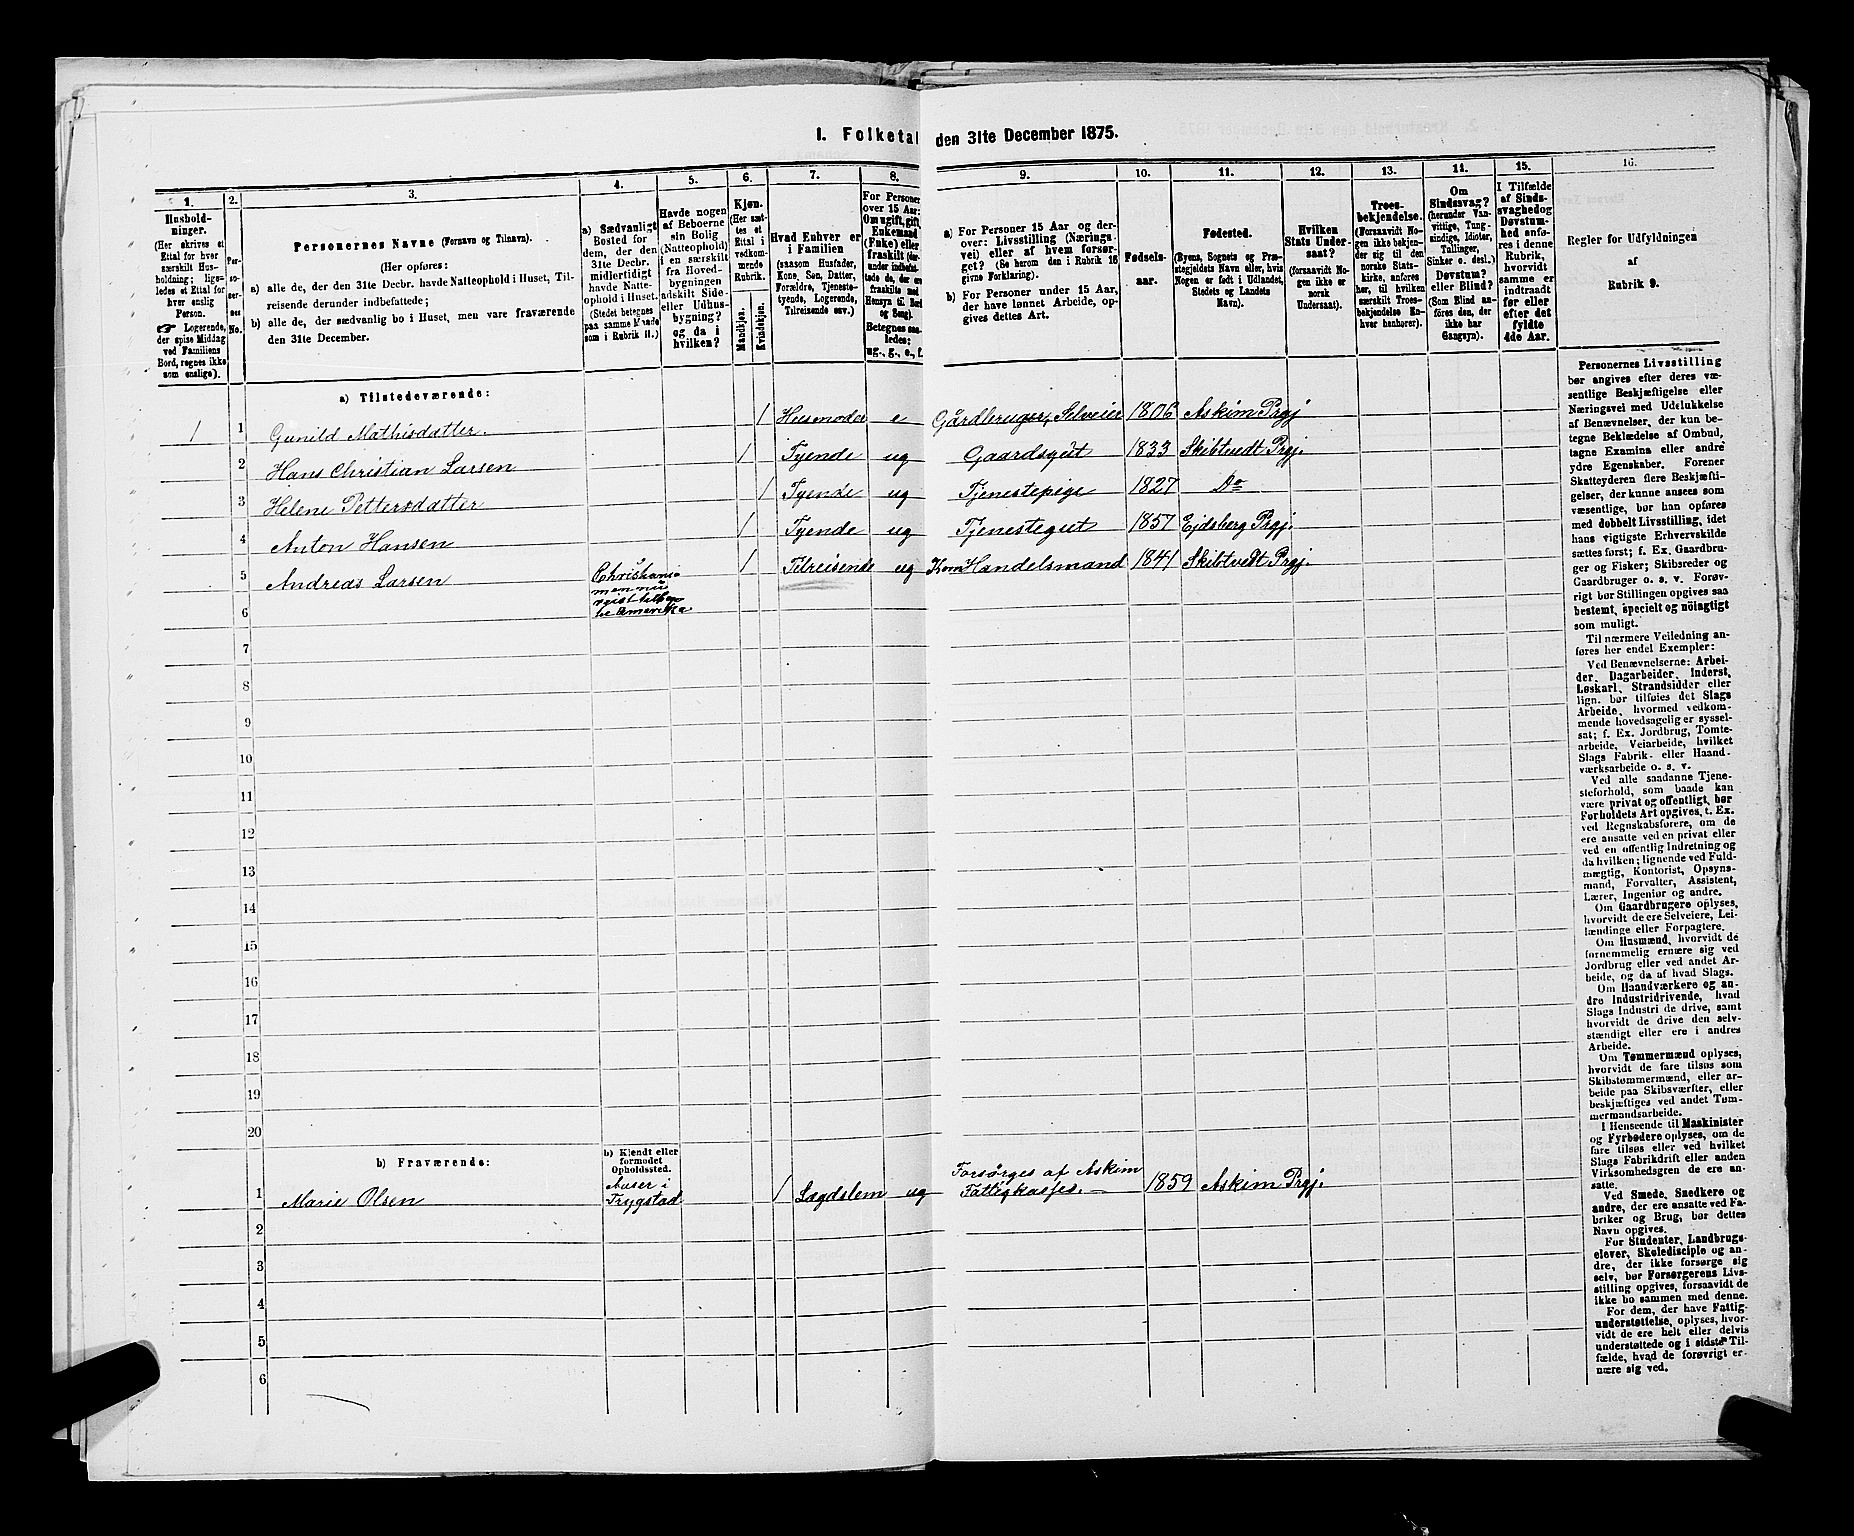 1. Folketal den 31te December 1875.
1. 2. 3. 4. 5. 6. 7. 8. 9. 10. 11. 12. 13. 14. 15. 16.
Hushold-
ninger.
(Her skrives et
Ettal for hver
særskilt Hus-
holdning; lige-
ledes et Ettal for
hver enslig
Person.
☞ Logerende,
der spise Middag
ved Familiens
Bord, regnes ikke
som enslige).
Per-
so-
ner-
nes
No.
Personernes Navne (Fornavn og Tilnavn).
(Her opføres:
a) alle de, der den 31te Decbr. havde Natteophold i Huset, Til-
reisende derunder indbefattede;
b) alle de, der sædvanlig bo i Huset, men vare fraværende
den 31te December.
a) Sædvanligt
Bosted for
dem, der den
31te Decbr.
midlertidigt
havde Natte-
ophold i Huset.
(Stedet betegnes
paa samme Maade
som i Rubrik 11.)
Havde nogen
af Beboerne
sin Bolig
(Natteophold)
i en særskilt
fra Hoved-
bygningen
adskilt Side-
eller Udhus-
bygning?
og da i
hvilken?
Kjøn.
(Her sæt-
tes et
Ettal i
vedkom-
mende
Rubrik.
Mandkjøn.
Kvindekjøn.
Hvad Enhver er
i Familien
(saasom Husfader,
Kone, Søn, Datter,
Forældre, Tjeneste-
tyende, Logerende,
Tilreisende osv.)
For Personer
over 15 Aar:
Om ugift, gift,
Enkemand
(Enke) eller
fraskilt (der-
under indbefat-
tede de, der ere
fraskilte med
Hensyn til Bord
og Seng).
Betegnes saa-
ledes:
ug., g., e., f.
a) For Personer 15 Aar og der-
over: Livsstilling (Nærings-
vei) eller af hvem forsør-
get? (Se herom den i Rubrik 16
givne Forklaring).
b) For Personer under 15 Aar,
der have lønnet Arbeide, op-
gives dettes Art.
Fødsels-
aar.
Fødested.
(Byens, Sognets og Præ-
stegjeldets Navn eller, hvis
Nogen er født i Udlandet,
Stedets og Landets
Navn).
Hvilken
Stats Under-
saat?
(forsaavidt No-
gen ikke er
norsk
Undersaat).
Troes-
bekjendelse.
(Forsaavidt No-
gen ikke bekjen-
der sig til den
norske Stats-
kirke, anføres
her, til hvilken
særskilt Troes-
bekjendelse En-
hver henhører).
Om
Sindssvag?
(herunder Van-
vittige, Tung-
sindige, Idioter,
Tullinger,
Sinker o. desl.)
Døvstum?
eller Blind?
(Som Blind an-
føres den, der
ikke har
Gangsyn).
I Tilfælde
af Sinds-
svaghed og
Døvstum-
hed anfø-
res i denne
Rubrik,
hvorvidt
samme er
indtraadt
før eller
efter det
fyldte
4de Aar.
Regler for Udfyldningen
af
Rubrik 9.
a) Tilstedeværende:
1 1 Gunild Mathisdatter. 1 Husmoder e Gårdbruger, Selveier 1806 Askim Prgj
2 Hans Christian Larsen 1 Tyende ug Gaardsgut 1833 Skibtvedt Prgj.
3 Helene Pettersdatter 1 Tyende ug Tjenestepige 1827 Do
4 Anton Hansen 1 Tyende ug Tjenestegut 1857 Ejdsberg Prgj.
5 Andreas Larsen Christiania 1 Tilreisende ug Handelsmand 1841 Skibtvedt Prgj.
men nu
rejst tilba
ke Amerika
6
7
8
9
10
11
12
13
14
15
16
17
18
19
20
b) Fraværende:
b) Kjendt eller
formodet
Opholdssted.
1 Marie Olsen Auser i Trygstad 1 Lægdslem ug Forsørges af Askim Fattigkasse. — 1859 Askim Prgj.
2
3
4
5
6
Personernes Livsstilling
bør angives efter deres væ-
sentlige Beskjæftigelse eller
Næringsvei med Udelukkelse
af Benævnelser, der kun be-
tegne Beklædelse af Ombud,
tagne Examina eller andre
ydre Egenskaber. Forener
Skatteyderen flere Beskjæfti-
gelser, der kunne ansees som
væsentlige, bør han opføres
med dobbelt Livsstilling, idet
hans vigtigste Erhvervskilde
sættes først; f. Ex. Gaardbru-
ger og Fisker; Skibsreder og
Gaardbruger o. s. v. Forøv-
rigt bør Stillingen opgives saa
bestemt, specielt og nöiagtigt
som muligt.
Til nærmere Veiledning an-
føres her endel Exempler:
Ved Benævnelserne: Arbei-
der, Dagarbeider, Inderst,
Løskarl, Strandsidder eller
lign. bør tilføies det Slags
Arbeide, hvormed vedkom-
mende hovedsagelig er syssel-
sat; f. Ex. Jordbrug, Tomte-
arbeide, Veiarbeide, hvilket
Slags Fabrik- eller Haand-
værksarbeide o. s. v.
Ved alle saadanne Tjene-
steforhold, som baade kan
være privat og offentligt, bør
Forholdets Art opgives, t. Ex.
ved Regnskabsførere, om de
ere ansatte ved en privat eller
ved en offentlig Indretning og
da hvilken; lignende ved Fuld-
mægtig, Kontorist, Opsyns-
mand, Forvalter, Assistent,
Lærer, Ingeniør og andre.
Om Gaardbrugere oplyses,
hvorvidt de ere Selveiere, Lei-
lændinge eller Forpagtere.
Om Husmænd, hvorvidt de
fornemmelig ernære sig ved
Jordbrug eller ved andet Ar-
beide, og da af hvad Slags.
Om Haandværkere og an-
dre Industridrivende, hvad
Slags Industri de drive, samt
hvorvidt de drive den selv-
stændigt eller ere i andres
Arbeide.
Om Tømmermænd oplyses,
hvorvidt de fare tilsøs som
Skibstømmermænd, eller ar-
beide paa Skibsværfter, eller
beskjæftiges ved andet Tøm-
mermandsarbeide.
I Henseende til Maskinister
og Fyrbødere oplyses, om de
fare tilsøs eller ved hvilket
Slags Fabrikdrift eller anden
Virksomhedsgren de ere an-
satte.
Ved Smede, Snedkere og
andre, der ere ansatte ved Fa-
briker og Brug, bør dettes
Navn opgives.
For Studenter, Landbrugs-
elever, Skoledisciple og an-
dre, der ikke forsørge sig
selv, bør Forsørgerens Livs-
stilling opgives, forsaavidt de
ikke bo sammen med denne.
For dem, der have Fattig-
understøttelse, oplyses, hvor-
vidt de ere helt eller delvis
understøttede og i sidste Til-
fælde, hvad de forøvrigt er-
nære sig ved.